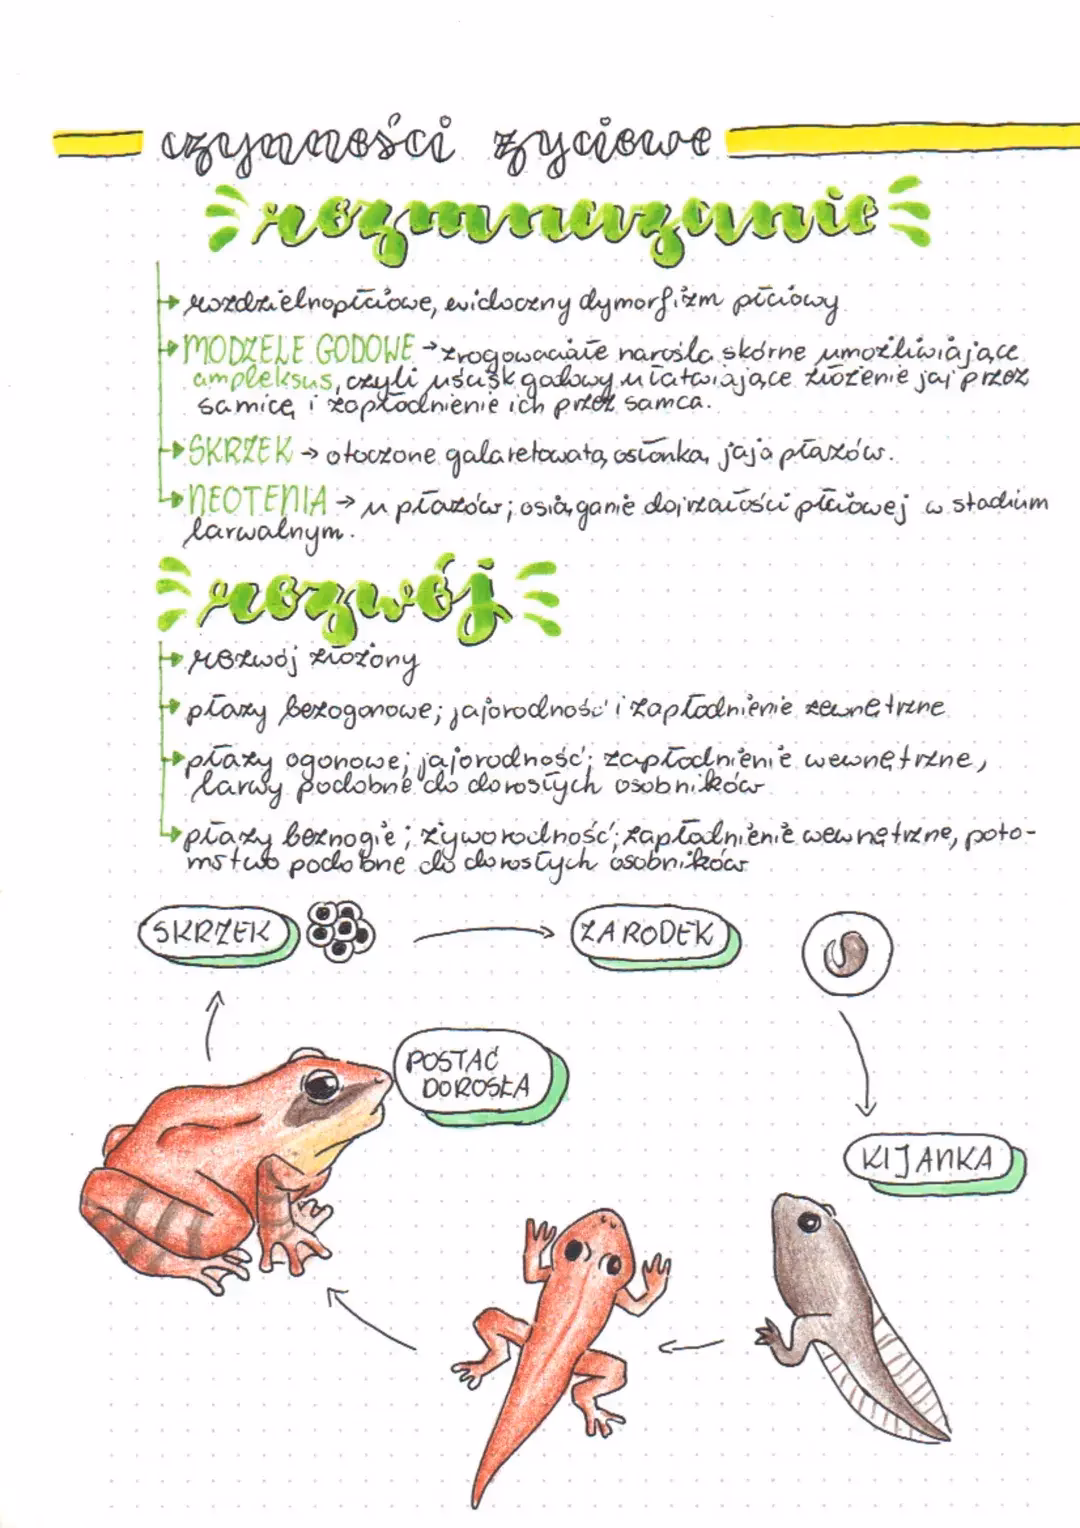 czynności życiowe
rozmnażanie
rozdzielnopłciowe, widoczny dymorfizm płciowy
MODZELE GODOWE → zrogowaciałe narośla skórne umożliwiające
ampleksus, czyli uścisk godowy ułatwiające złożenie jaj przez
samicę i zapłodnienie ich przez samca.
SKRZEK → otoczone galaretowatą osłonką, jaja płazów.
NEOTENIA → u płazów; osiąganie dojrzałości płciowej w stadium
larwalnym.
rozwój
rozwój złożony
płazy bezogonowe; jajorodność i zapłodnienie zewnętrzne
płazy ogonowe; jajorodność; zapłodnienie wewnętrzne,
larwy podobne do dorosłych osobników
płazy beznogie; żyworodność; zapłodnienie wewnętrzne, poto-
mstwo podobne do dorosłych osobników
SKRZEK
ZARODEK
POSTAĆ
DOROSŁA
KIJANKA